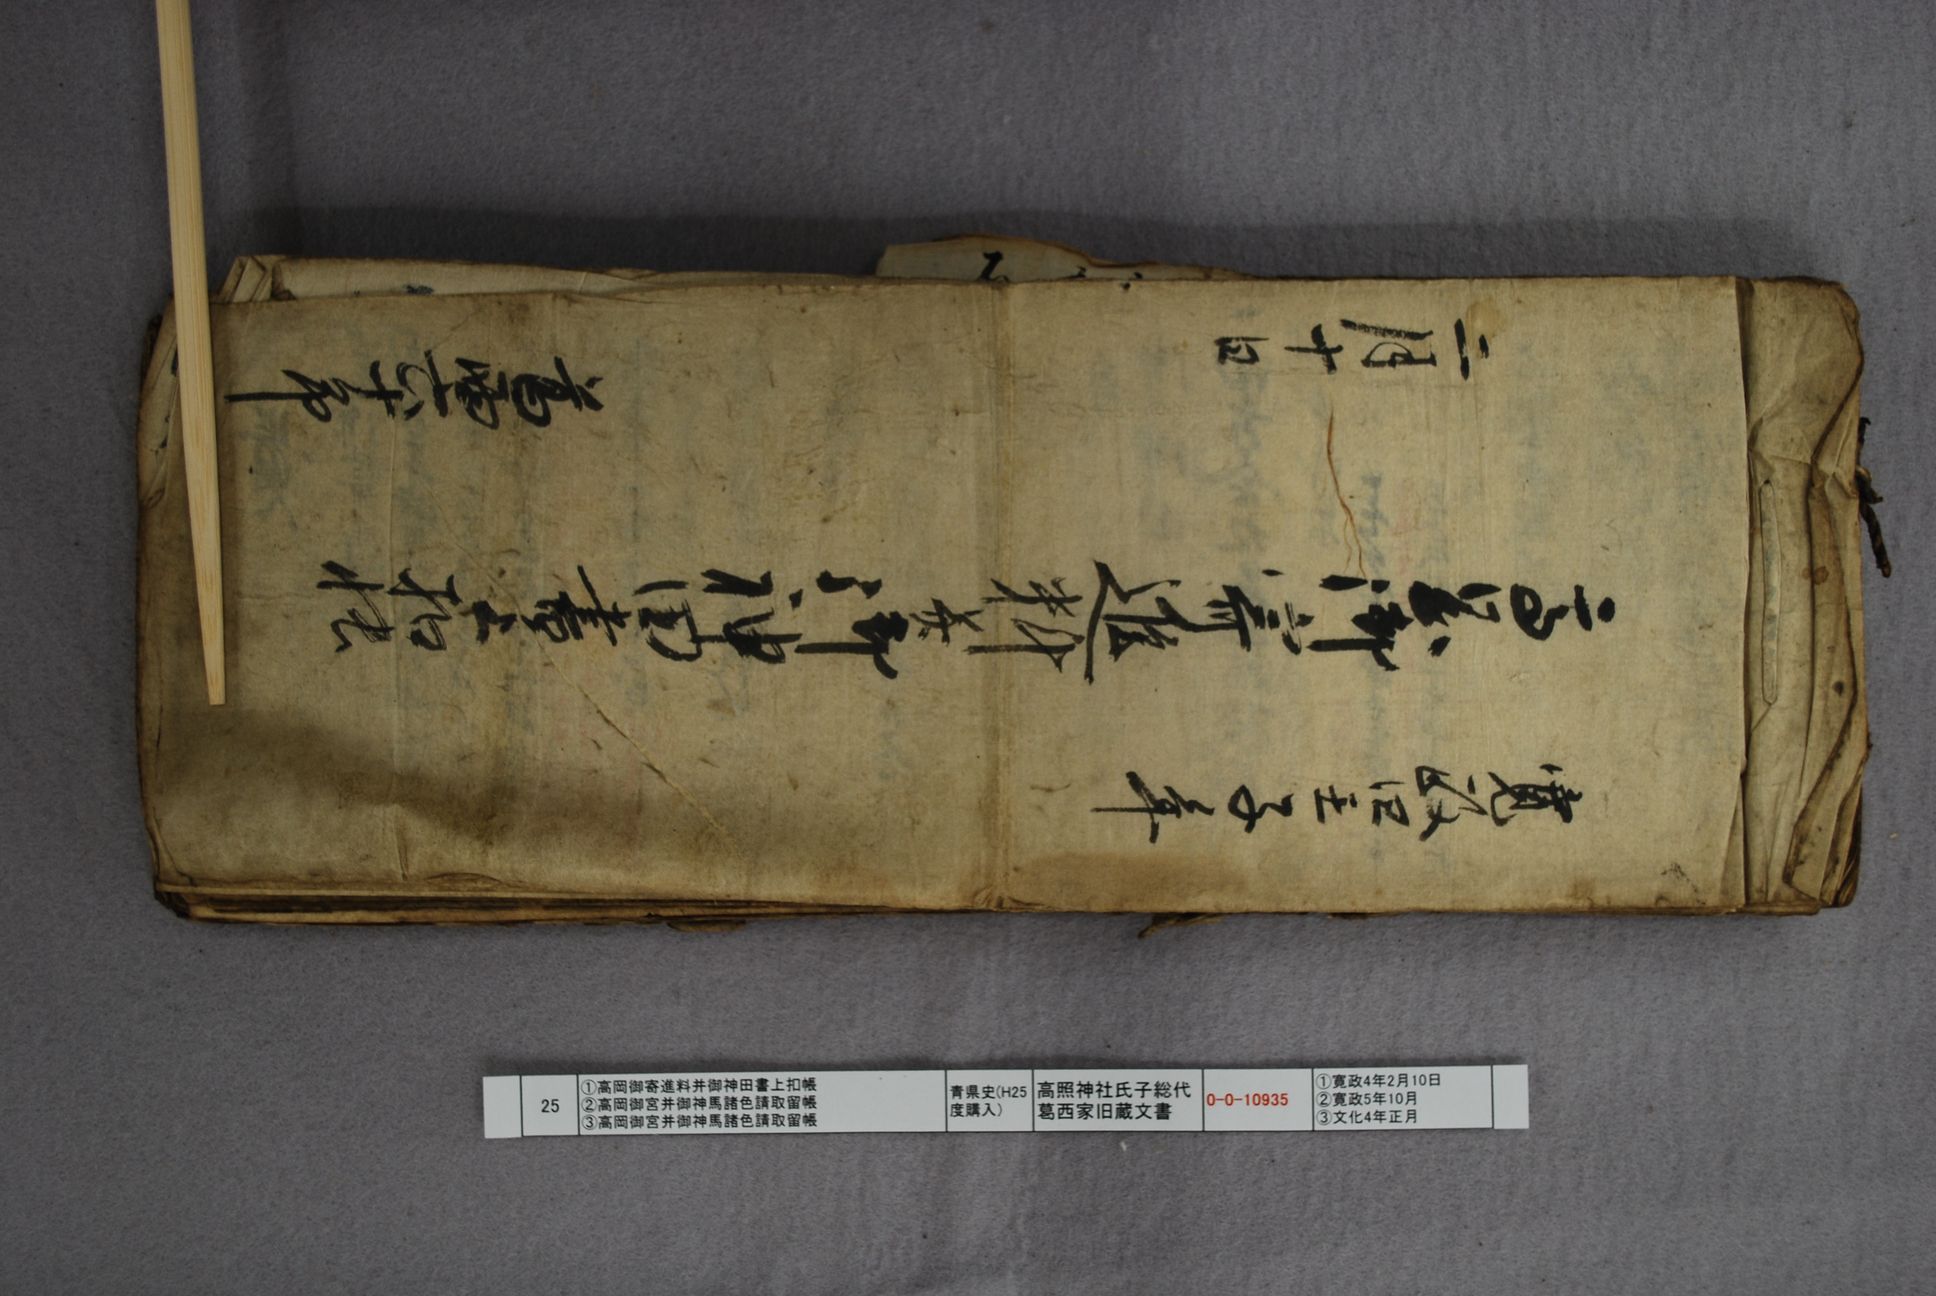 寛政四壬子年
高岡御寄進料
并ニ御神田書上扣帳
二月十日
25
①高岡御寄進料并御神田書上扣帳
②高岡御宮并御神馬諸色請取留帳
③高岡御宮并御神馬諸色請取留帳
青県史(H25
度購入)
高照神社氏子総代
葛西家旧蔵文書
0-0-10935
①寛政4年2月10日
②寛政5年10月
③文化4年正月